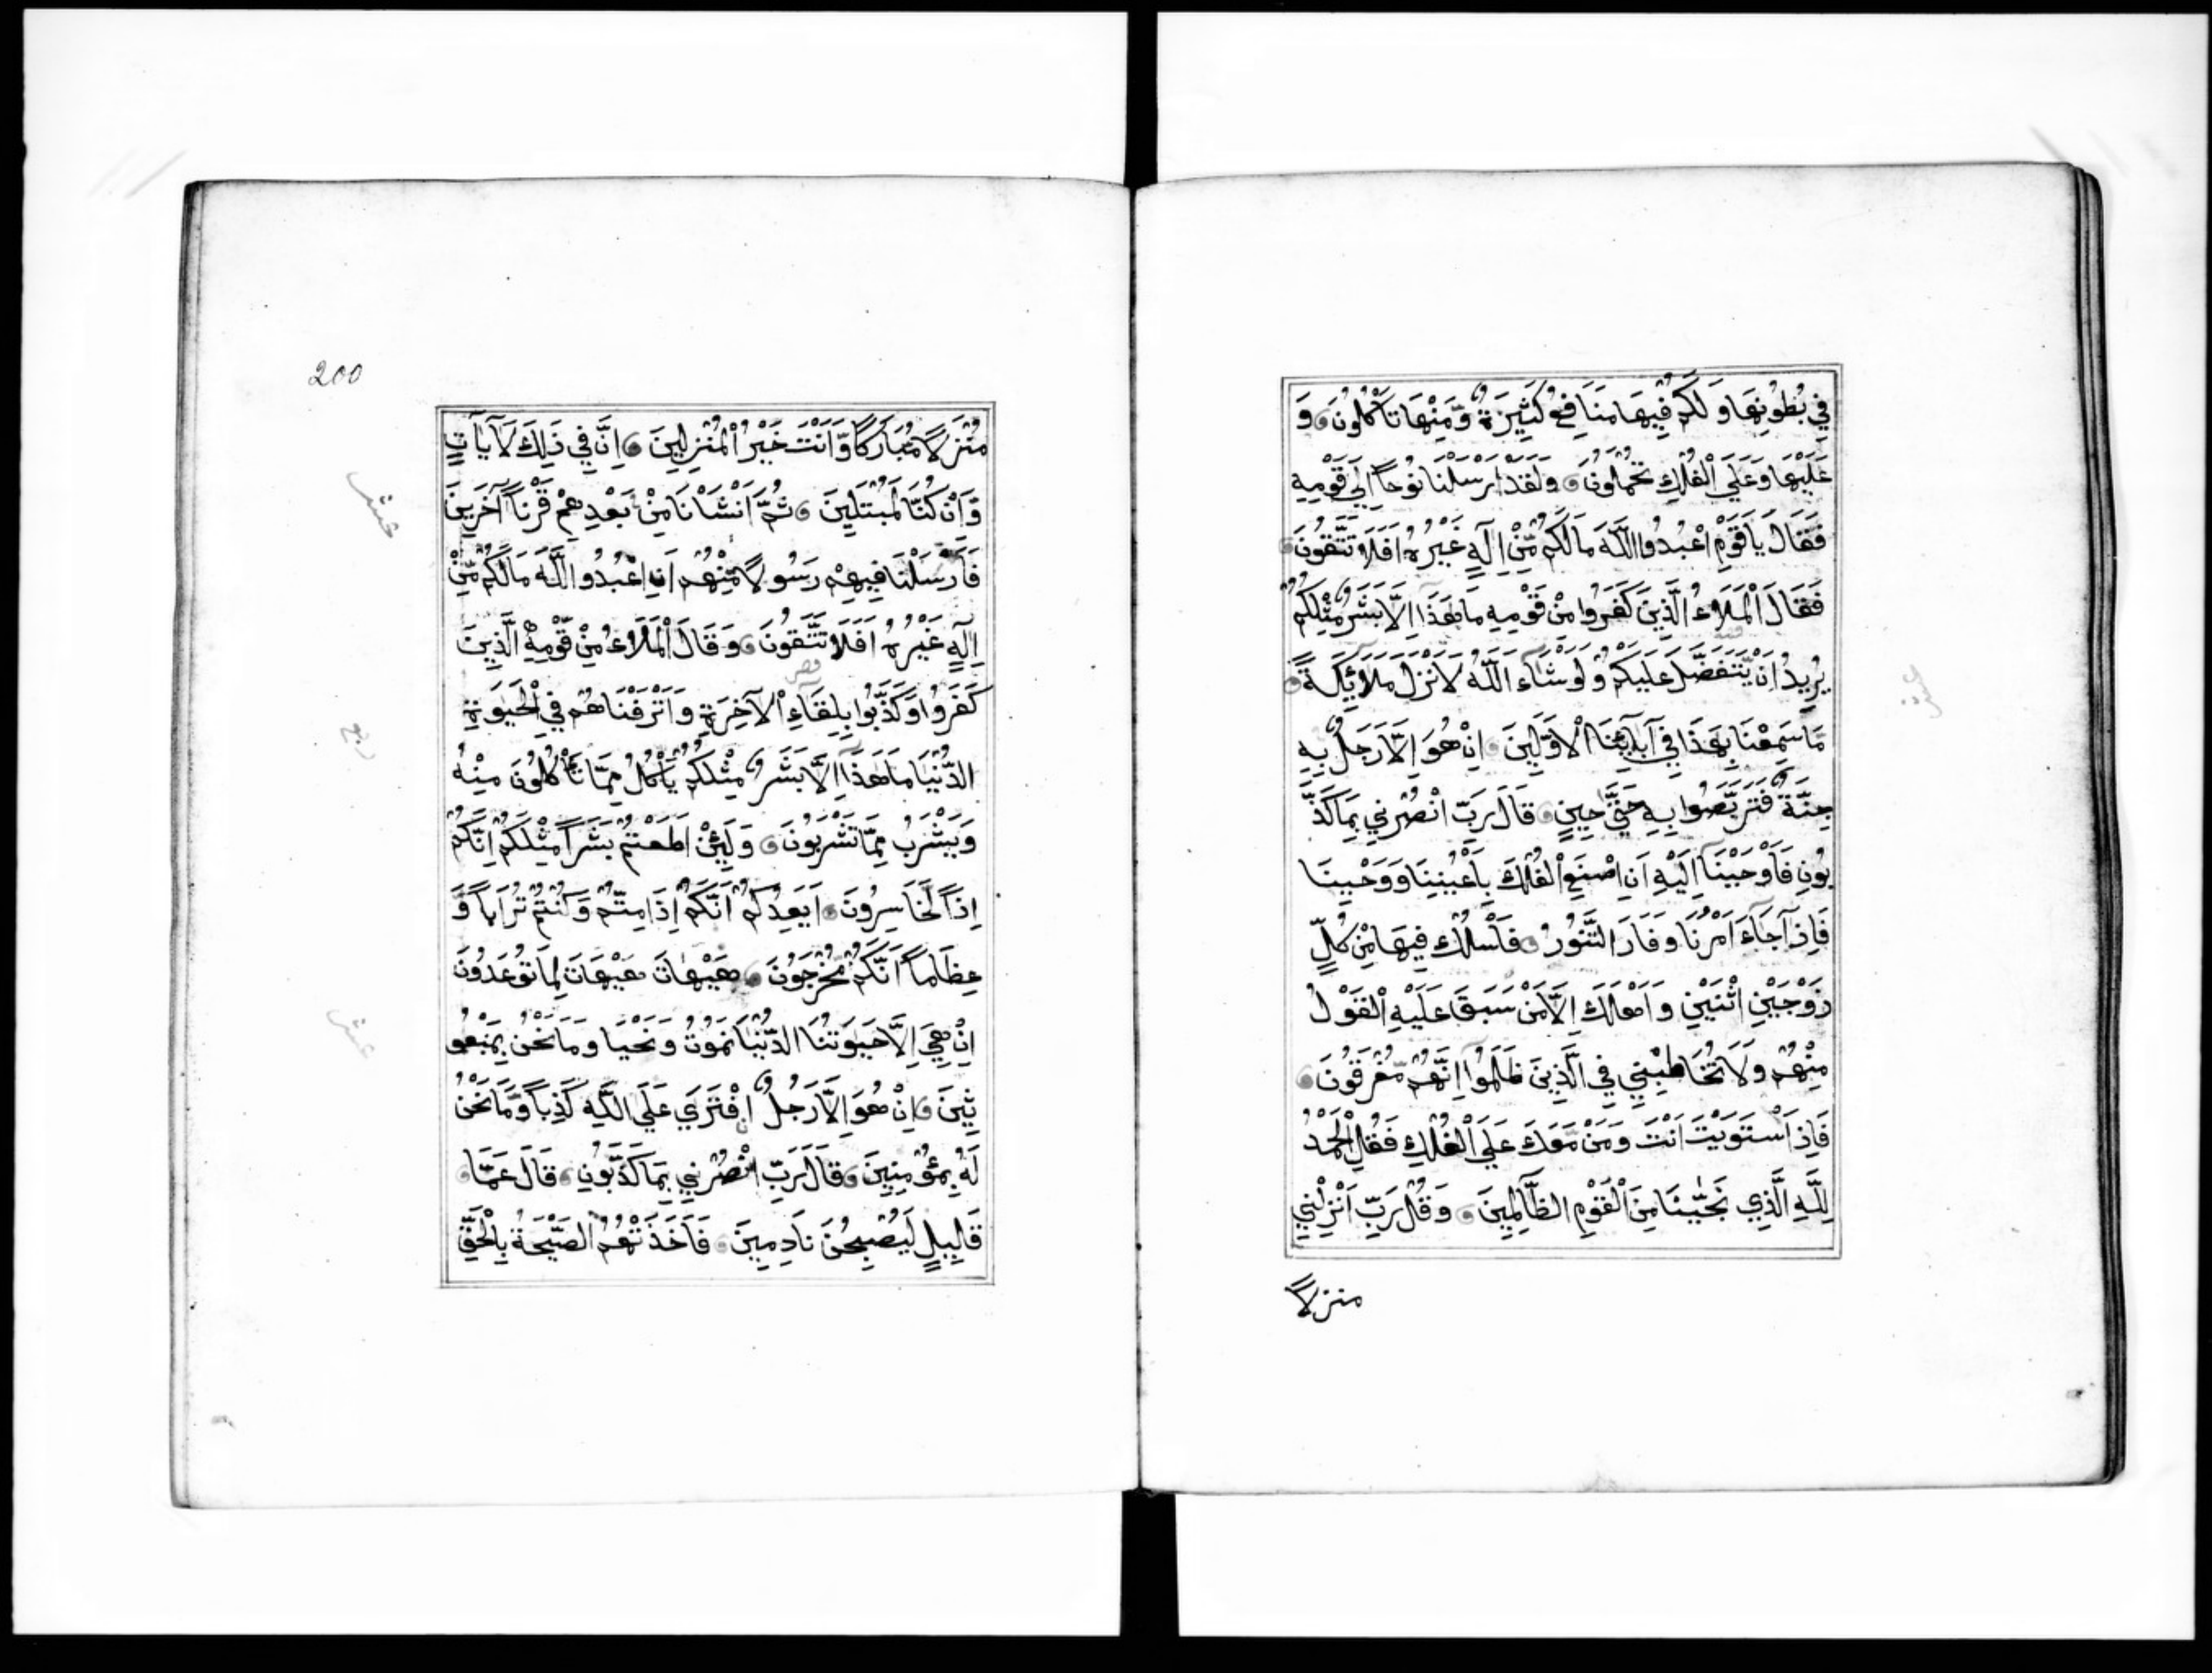 فِي بُطُونِهَا وَلَكُمْ فِيهَا مَنَافِعُ كَثِيرَةٌ وَّمِنْهَا تَأْكُلُونَ وَ
عَلَيْهَا وَعَلَي الْفُلْكِ تُحْمَلُونَ وَلَقَدْ اَرْسَلْنَا نُوحًا اِلَي قَوْمِهِ
فَقَالَ يَا قَوْمِ اعْبُدُوا اللَّهَ مَالَكُمْ مِّنْ اِلَهٍ غَيْرُهُ اَفَلَا تَتَّقُونَ
فَقَالَ الْمَلَاءُ الَّذِينَ كَفَرُوا مِنْ قَوْمِهِ مَا هَذَا اِلَّا بَشَرٌ مِّثْلُكُمْ
يُرِيدُ اَنْ يَّتَفَضَّلَ عَلَيْكُمْ وَلَوْ شَآءَ اللَّهُ لَاَنْزَلَ مَلَآئِكَةً
مَّا سَمِعْنَا بِهَذَا فِي آبَآئِنَا الْاَوَّلِينَ اِنْ هُوَ اِلَّا رَجُلٌ بِهِ
جِنَّةٌ فَتَرَبَّصُوا بِهِ حَتَّي حِينٍ قَالَ رَبِّ انْصُرْنِي بِمَا كَذَّ
بُونِ فَاَوْحَيْنَآ اِلَيْهِ اَنِ اصْنَعِ الْفُلْكَ بِاَعْيُنِنَا وَوَحْيِنَا
فَاِذَا جَآءَ اَمْرُنَا وَفَارَ التَّنُّورُ فَاسْلُكْ فِيهَا مِنْ كُلٍّ
زَوْجَيْنِ اثْنَيْنِ وَاَهْلَكَ اِلَّا مَنْ سَبَقَ عَلَيْهِ الْقَوْلُ
مِنْهُمْ وَلَا تُخَاطِبْنِي فِي الَّذِينَ ظَلَمُوا اِنَّهُمْ مُّغْرَقُونَ
فَاِذَا اسْتَوَيْتَ اَنْتَ وَمَنْ مَّعَكَ عَلَي الْفُلْكِ فَقُلِ الْحَمْدُ
لِلَّهِ الَّذِي نَجَّيٰنَا مِنَ الْقَوْمِ الظَّالِمِينَ وَقُلْ رَبِّ اَنْزِلْنِي
منزلاً
200
مُنْزَلًا مُّبَارَكًا وَّاَنْتَ خَيْرُ الْمُنْزِلِينَ اِنَّ فِي ذَلِكَ لَآيَاتٍ
وَّاِنْ كُنَّا لَمُبْتَلِينَ ثُمَّ اَنْشَاْنَا مِنْ بَعْدِهِمْ قَرْنًا آخَرِينَ
فَاَرْسَلْنَا فِيهِمْ رَسُولًا مِّنْهُمْ اَنِ اعْبُدُوا اللَّهَ مَالَكُمْ مِّنْ
اِلَهٍ غَيْرُهُ اَفَلَا تَتَّقُونَ وَقَالَ الْمَلَاءُ مِنْ قَوْمِهِ الَّذِينَ
كَفَرُوا وَكَذَّبُوا بِلِقَآءِ الْآخِرَةِ وَاَتْرَفْنَاهُمْ فِي الْحَيٰوةِ
الدُّنْيَا مَا هَذَا اِلَّا بَشَرٌ مِّثْلُكُمْ يَاْكُلُ مِمَّا تَاْكُلُونَ مِنْهُ
وَيَشْرَبُ مِمَّا تَشْرَبُونَ وَلَئِنْ اَطَعْتُمْ بَشَرًا مِّثْلَكُمْ اِنَّكُمْ
اِذًا لَّخَاسِرُونَ اَيَعِدُكُمْ اَنَّكُمْ اِذَا مِتُّمْ وَكُنْتُمْ تُرَابًا وَّ
عِظَامًا اَنَّكُمْ مُّخْرَجُونَ هَيْهَاتَ هَيْهَاتَ لِمَا تُوعَدُونَ
اِنْ هِيَ اِلَّا حَيٰوتُنَا الدُّنْيَا نَمُوتُ وَنَحْيَا وَمَا نَحْنُ بِمَبْعُو
ثِينَ اِنْ هُوَ اِلَّا رَجُلٌ افْتَرَي عَلَي اللَّهِ كَذِبًا وَّمَا نَحْنُ
لَهُ بِمُؤْمِنِينَ قَالَ رَبِّ انْصُرْنِي بِمَا كَذَّبُونِ قَالَ عَمَّا
قَلِيلٍ لَيُصْبِحُنَّ نَادِمِينَ فَاَخَذَتْهُمُ الصَّيْحَةُ بِالْحَقِّ
عشر
ربع
عشر